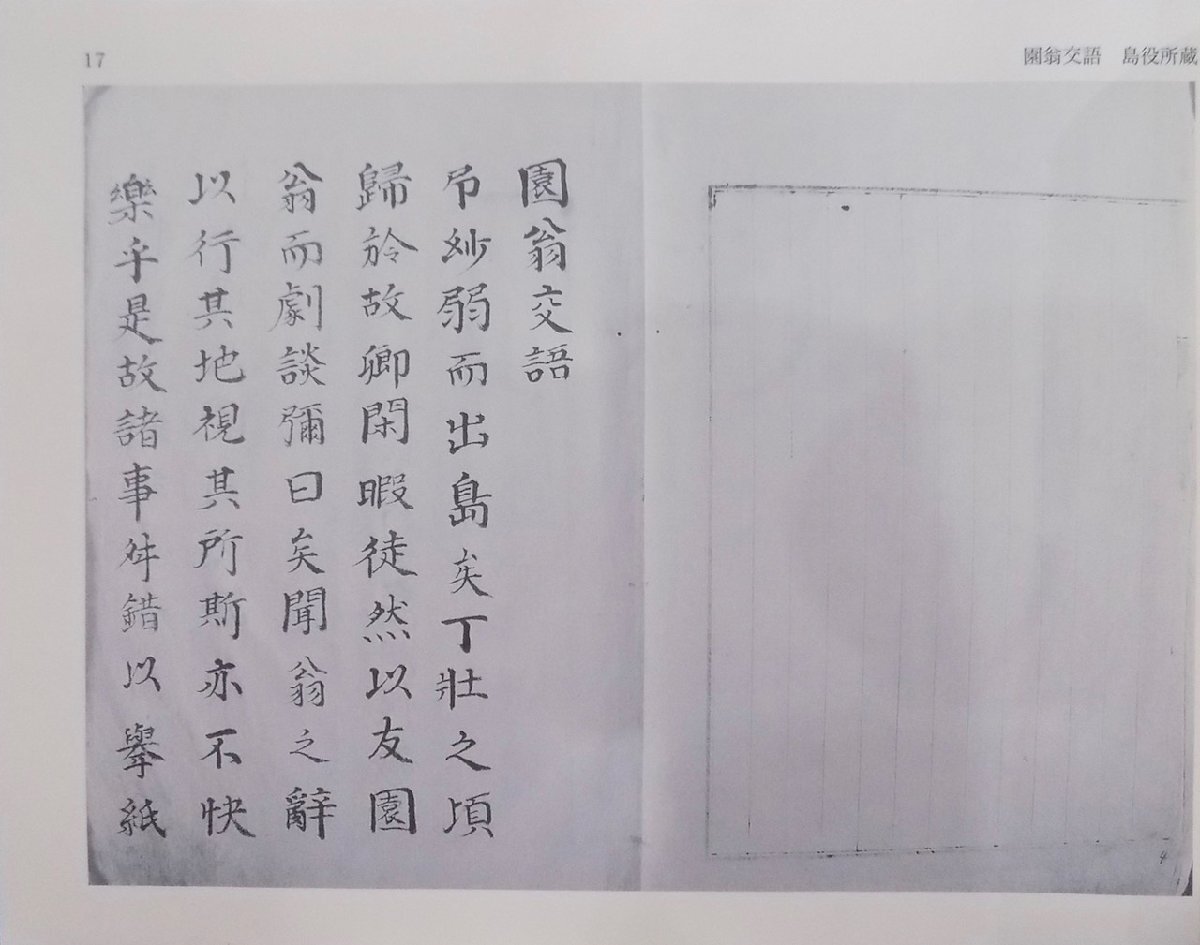 17
園翁交語 島役所蔵
園翁交語
弔玅弱而出島矣丁壯之頃
歸於故卿閑暇徒然以友園
翁而劇談彌日矣聞翁之辭
以行其地視其所斯亦不快
樂乎是故諸事舛錯以擧紙